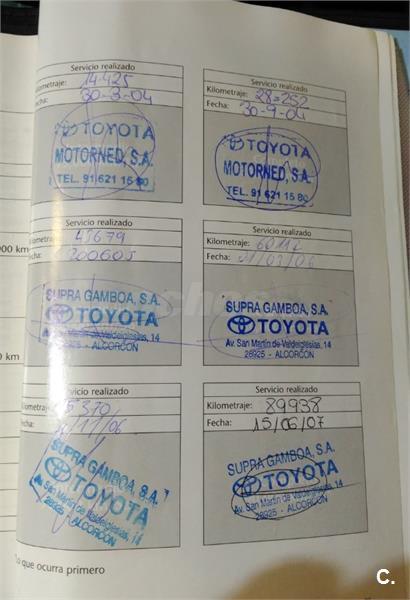 Servicio realizado
Kilometraje: 14.425
Fecha: 30-3-04
TOYOTA
MOTORNED, S.A.
TEL. 91 621 15 80
Servicio realizado
Kilometraje: 28.252
Fecha: 30-9-04
TOYOTA
MOTORNED, S.A.
TEL. 91 621 15 80
000 km
Servicio realizado
Kilometraje: 45679
Fecha: 200605
SUPRA GAMBOA, S.A.
TOYOTA
Av. San Martín de Valdeiglesias, 14
28925 - ALCORCON
Servicio realizado
Kilometraje:
Fecha:
SUPRA GAMBOA, S.A.
TOYOTA
Av. San Martín de Valdeiglesias, 14
28925 - ALCORCON
0 km
Servicio realizado
Kilometraje: 5370
/11/06
SUPRA GAMBOA, S.A.
TOYOTA
Av. San Martín de Valdeiglesias, 14
28925 - ALCORCON
Servicio realizado
Kilometraje: 89938
Fecha: 15/06/07
SUPRA GAMBOA, S.A.
TOYOTA
Av. San Martín de Valdeiglesias, 14
28925 - ALCORCON
lo que ocurra primero
C.